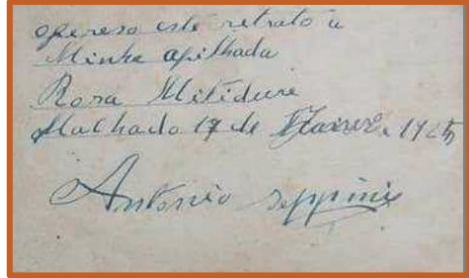 Ofereso este retrato a
Minha afilhada
Rosa Mitidure
Machado 17 de 1925
Antonio Seppini